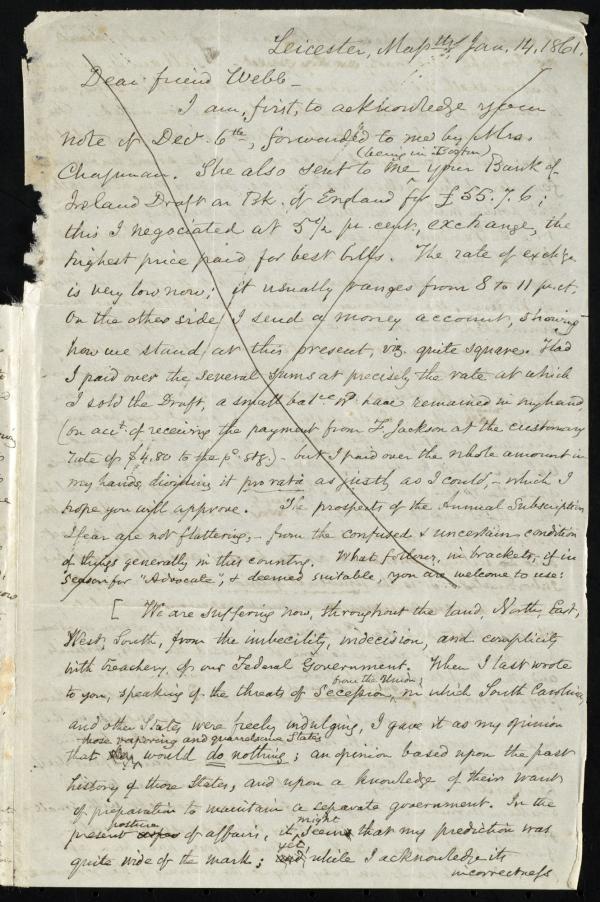 Leicester, Masstts, Jan. 14, 1861.
Dear friend Webb –
I am, first, to acknowledge your
note of Dec. 6th, forwarded to me by Mrs.
(being in Boston)
Chapman. She also sent to me your Bank of
Ireland Draft on Bk. of England for £55.7.6;
this I negociated at 5½ pr. cent, exchange, the
highest price paid for best bills. The rate of exchge
is very low now; it usually ranges from 8 to 11 pr. ct.
On the other side I send a money account, showing
how we stand at this present, viz. quite square. Had
I paid over the several sums at precisely the rate at which
I sold the Draft, a small balce wd have remained in my hand,
(on acct. of receiving the payment from F. Jackson at the customary
rate of $4.80 to the pd. stg.) – but I paid over the whole amount in
my hands, dividing it pro rata as justly as I could, – which I
hope you will approve. The prospects of the Annual Subscription
I fear are not flattering, – from the confused & uncertain condition
of things generally in this country. What follows, in brackets, if in
season for "Advocate", & deemed suitable, you are welcome to use:
[ We are suffering now, throughout the land, North, East,
West, South, from the imbecility, indecision, and complicity
with treachery, of our Federal Government. When I last wrote
from the Union,
to you, speaking of the threats of Secession, in which South Carolina
and other States were freely indulging, I gave it as my opinion
those vaporing and quarrelsome States
that they would do nothing; an opinion based upon the past
history of those States, and upon a knowledge of their want
of preparation to maintain a separate government. In the
posture might
present of affairs, it seem that my prediction was
yet,
quite wide of the mark; and while I acknowledge its
incorrectness